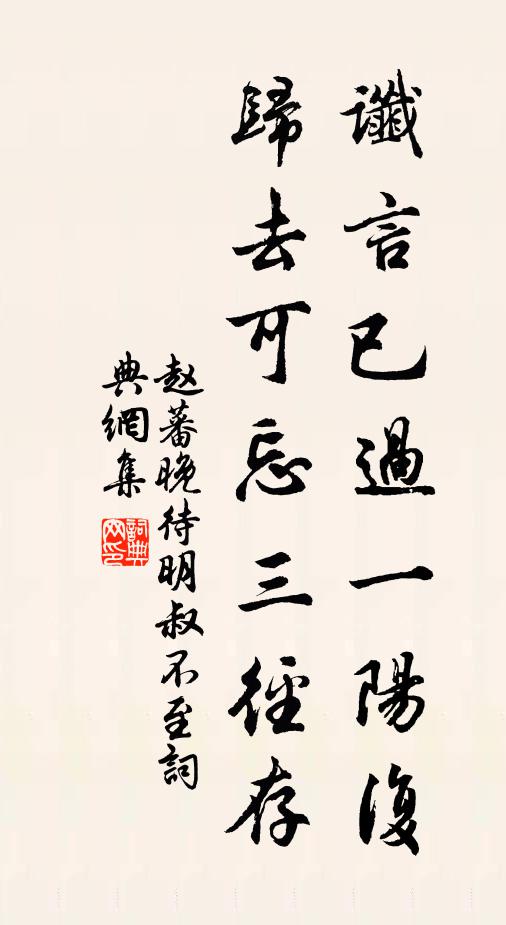 讖言已過一陽復
歸去可忘三徑存
赵蕃晚待明叔不至詞
典網集
詞典網印